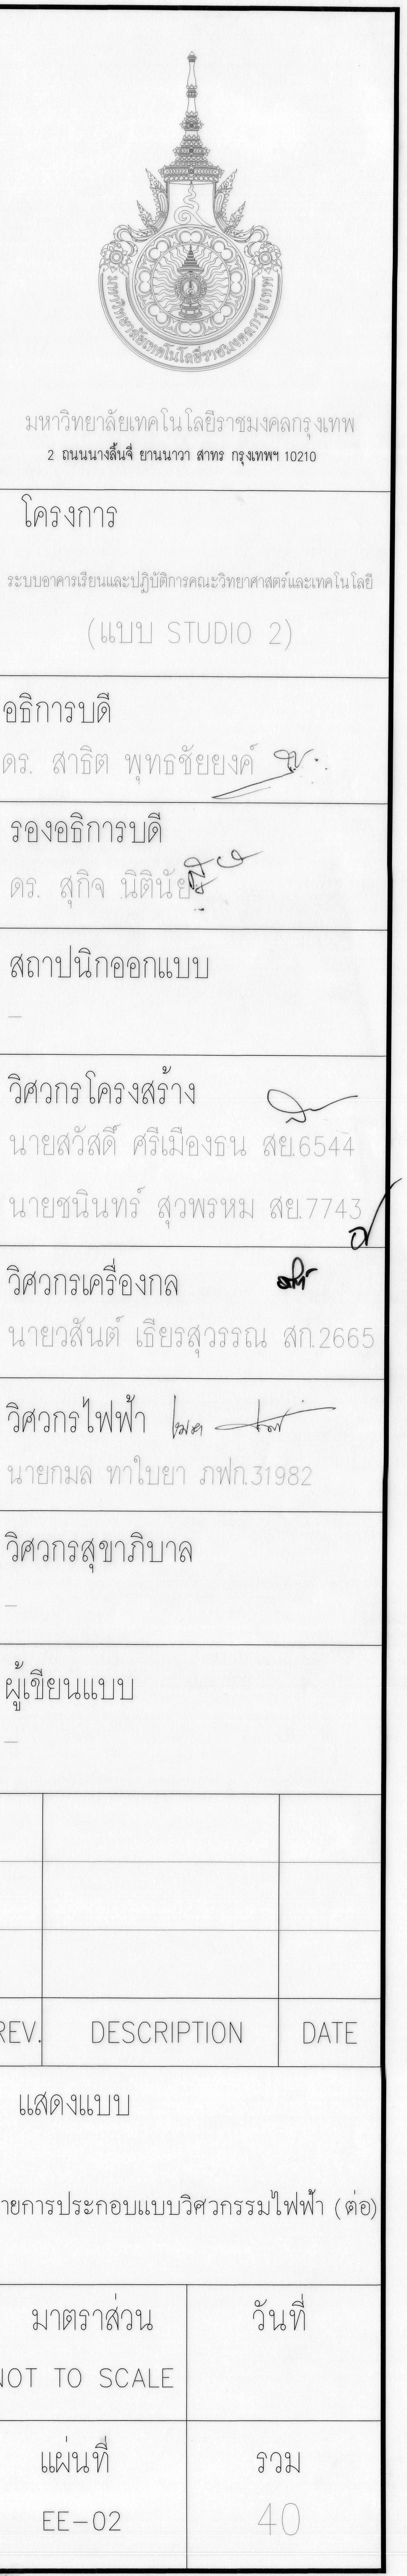 มหาวิทยาลัยเทคโนโลยีราชมงคลกรุงเทพ
มหาวิทยาลัยเทคโนโลยีราชมงคลกรุงเทพ
2 ถนนนางลิ้นจี่ ยานนาวา สาทร กรุงเทพฯ 10210
โครงการ
ระบบอาคารเรียนและปฏิบัติการคณะวิทยาศาสตร์และเทคโนโลยี
(แบบ STUDIO 2)
อธิการบดี
ดร. สาธิต พุทธชัยยงค์
รองอธิการบดี
ดร. สุกิจ นิตินัย
สถาปนิกออกแบบ
–
วิศวกรโครงสร้าง
นายสวัสดิ์ ศรีเมืองธน สย.6544
นายชนินทร์ สุวพรหม สย.7743
วิศวกรเครื่องกล
นายวสันต์ เธียรสุวรรณ สก.2665
วิศวกรไฟฟ้า
นายกมล ทาใบยา ภฟก.31982
วิศวกรสุขาภิบาล
–
ผู้เขียนแบบ
–
REV. DESCRIPTION DATE
แสดงแบบ
ายการประกอบแบบวิศวกรรมไฟฟ้า (ต่อ)
มาตราส่วน วันที่
NOT TO SCALE
แผ่นที่ รวม
EE-02 40